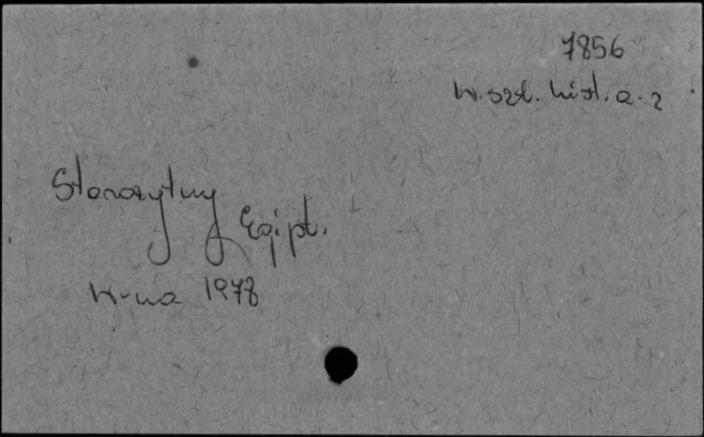 7856
W. szt. hist. a. 2
Starożytny
Egipt.
W-wa 1978